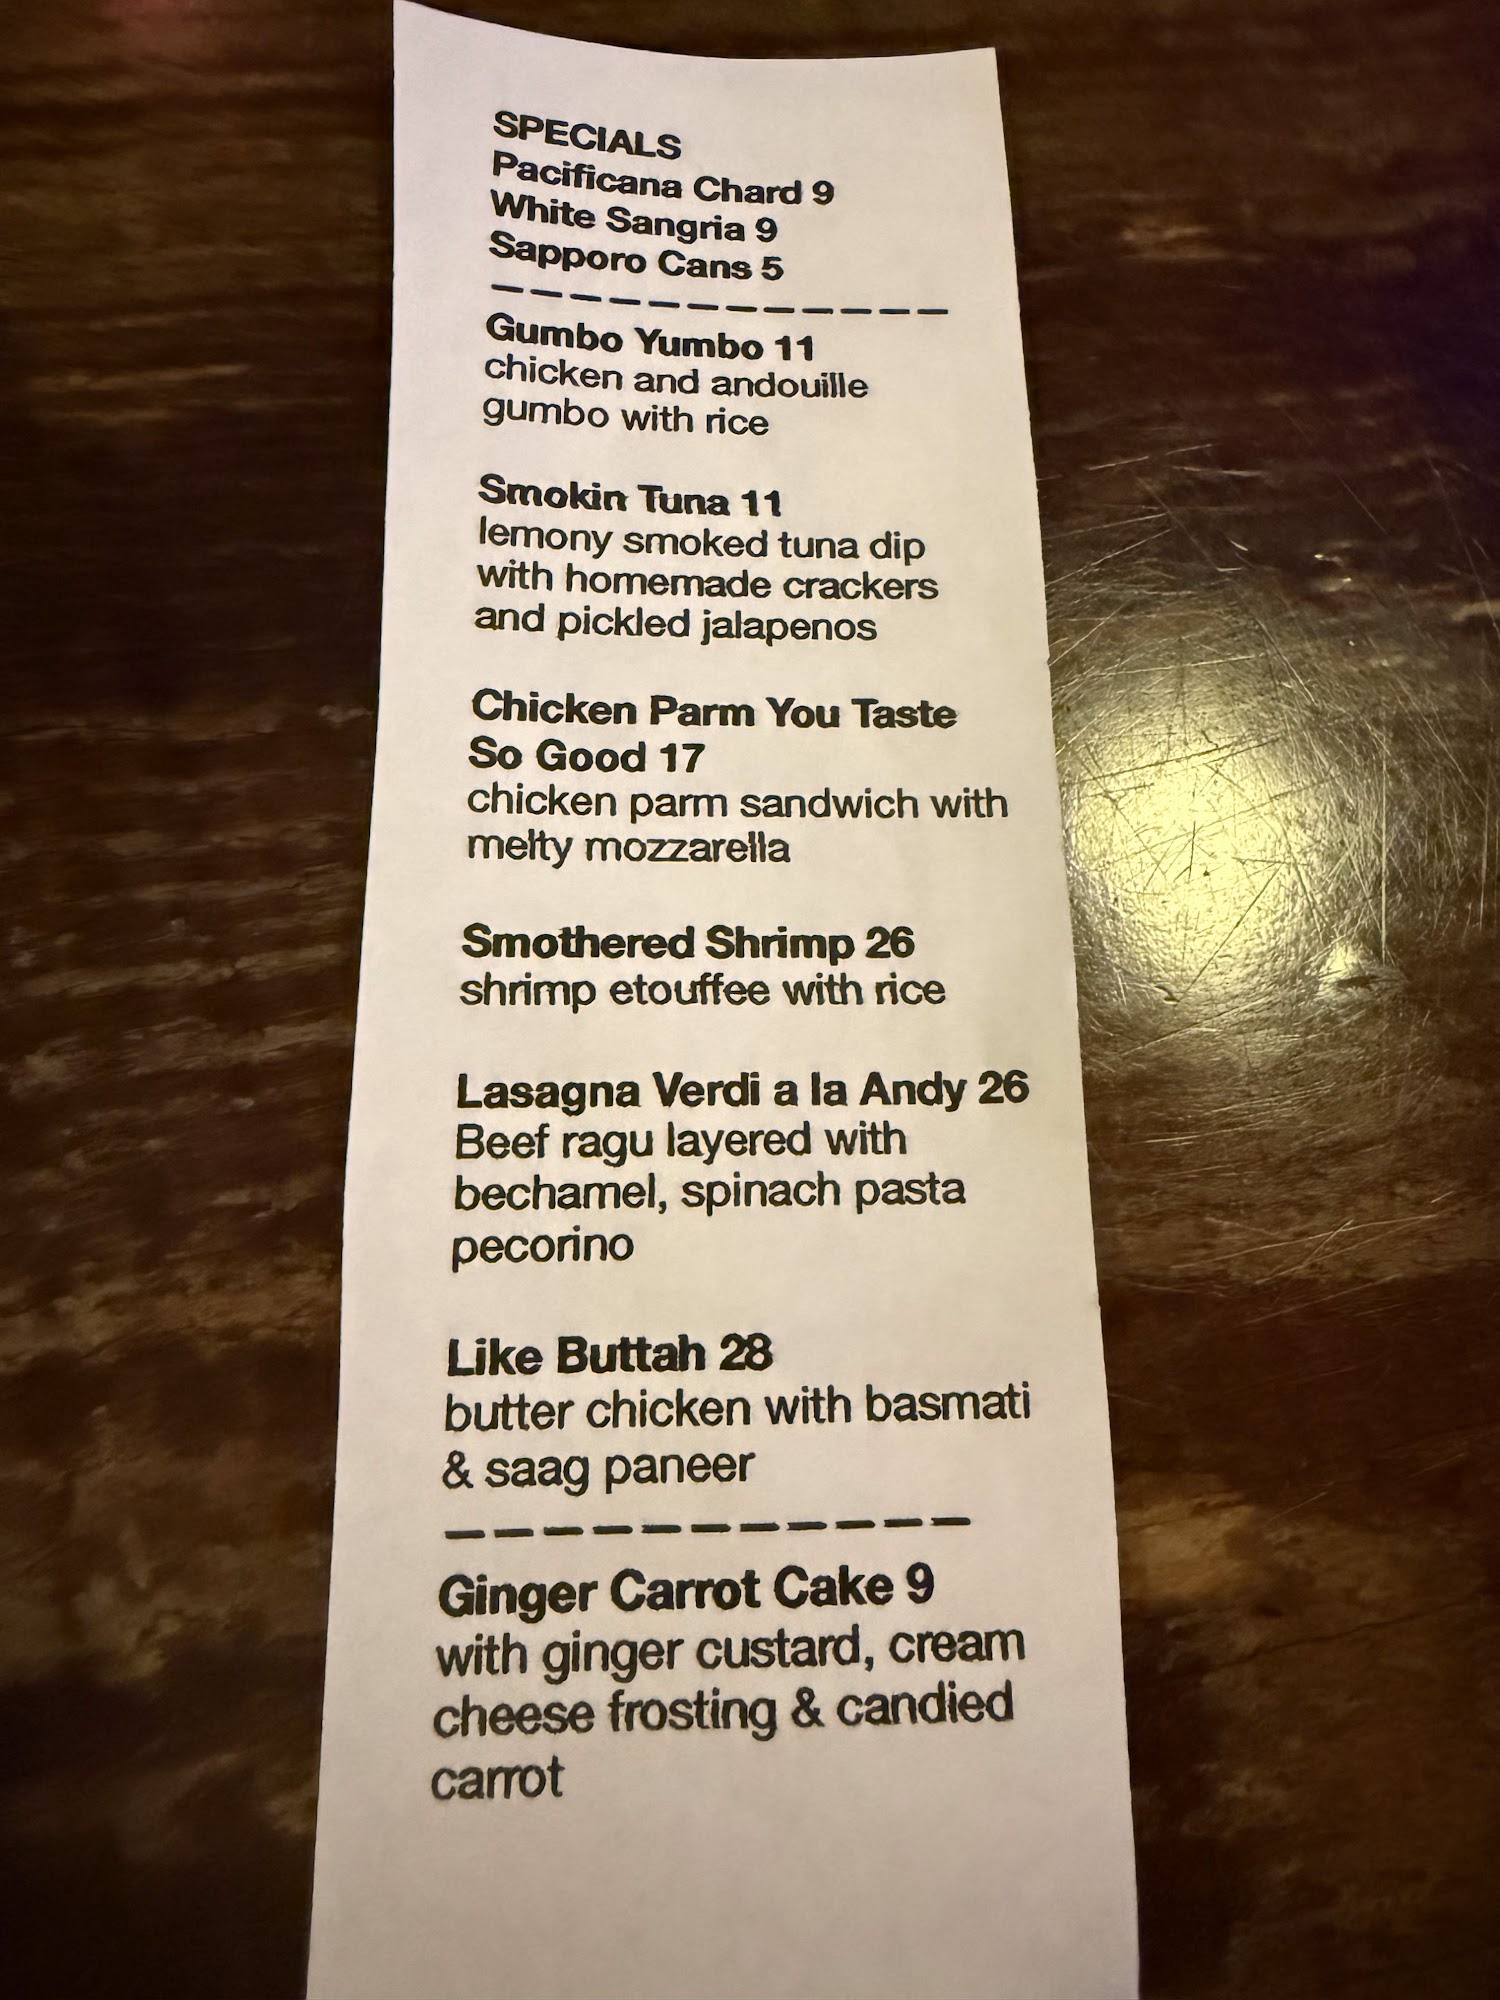 SPECIALS
Pacificana Chard 9
White Sangria 9
Sapporo Cans 5
____________
Gumbo Yumbo 11
chicken and andouille
gumbo with rice
Smokin Tuna 11
lemony smoked tuna dip
with homemade crackers
and pickled jalapenos
Chicken Parm You Taste
So Good 17
chicken parm sandwich with
melty mozzarella
Smothered Shrimp 26
shrimp etouffee with rice
Lasagna Verdi a la Andy 26
Beef ragu layered with
bechamel, spinach pasta
pecorino
Like Buttah 28
butter chicken with basmati
& saag paneer
___________
Ginger Carrot Cake 9
with ginger custard, cream
cheese frosting & candied
carrot